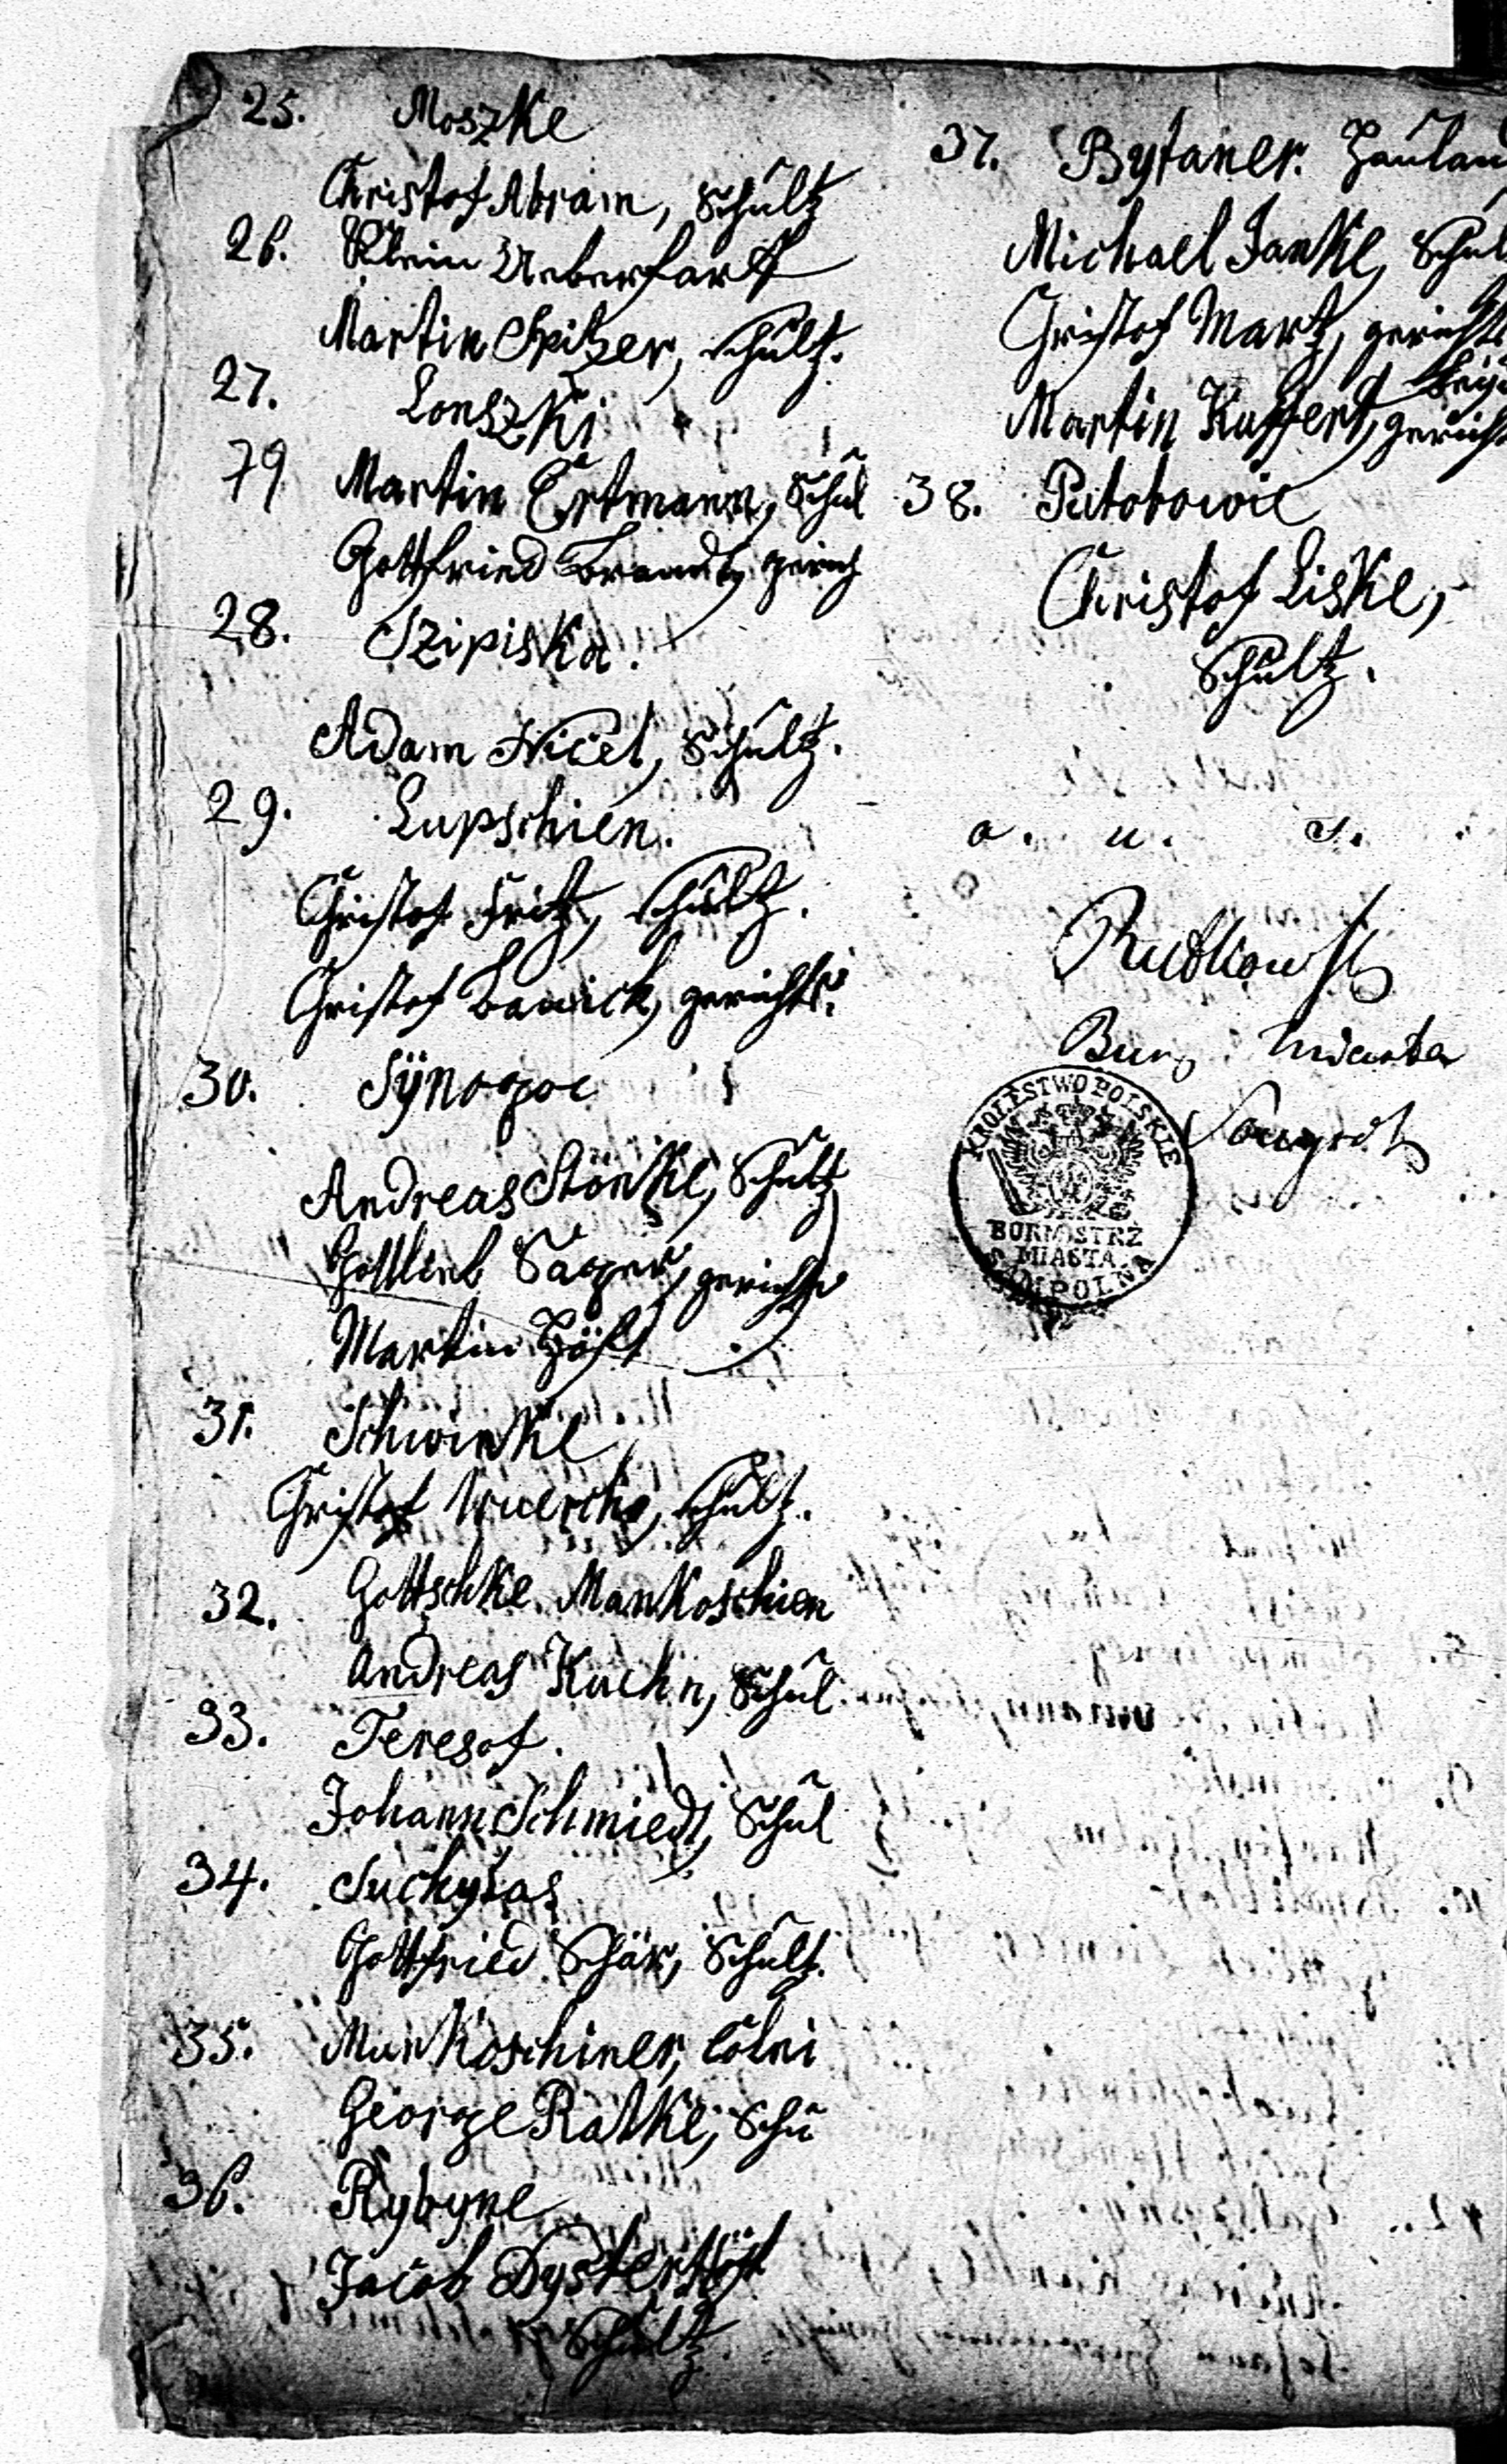 25. Moszke
Christof Abram, Schultz
26. Klein Ueberfart
Martin Spitzer, Schultz.
27. Lonszki
79 Martin Ertmann, Schul
Gottfried Brandt, gerich
28. Szipiska.
Adam Nickel, Schultz.
29. Lupschien.
Christof Fritz, Schultz.
Christof Banick, gerichts.
30. Synogoc
Andreas Stönke, Schultz
Gottlieb Säger, gerichts
Martin Höft
31. Schwinke
Christof Wuerche, Schultz.
32. Gottschke Mankoschien
Andreas Kuehn, Schul
33. Teresof.
Johann Schmiedt, Schul
34. Suchylas
Gottfried Schär, Schult.
35. Mankoschiner, Colni
George Ratke, Schu
36. Rybyne
Jacob Dysterhöft
Schultz.
37. Bytaner. Haulan
Michael Janke, Schul
Christof Martz, gerichts
Martin Kuffert, gericht
38. Putobowie
Christof Liske,
Schultz.
a. u. s.
Rutkowski
Burg: Miasta
KROLESTWO POLSKIE
BURMISTRZ
MIASTA
SAMPOLNA